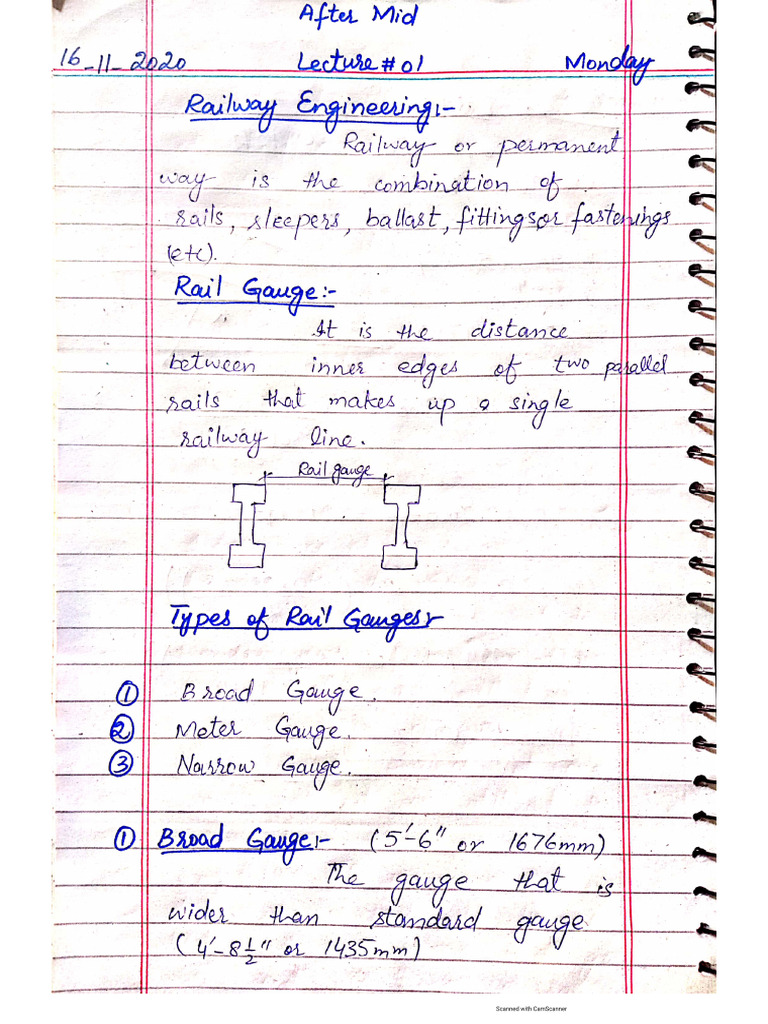 After Mid
16-11-2020 Lecture # 01 Monday
Railway Engineering:-
Railway or permanent
way is the combination of
rails, sleepers, ballast, fittings or fastenings
(etc).
Rail Gauge:-
It is the distance
between inner edges of two parallel
rails that makes up a single
railway line.
Rail gauge
Types of Rail Gauges:-
① Broad Gauge.
② Meter Gauge.
③ Narrow Gauge.
① Broad Gauge:- (5'-6" or 1676mm)
The gauge that is
wider than standard gauge
(4'-8 1/2" or 1435mm)
Scanned with CamScanner